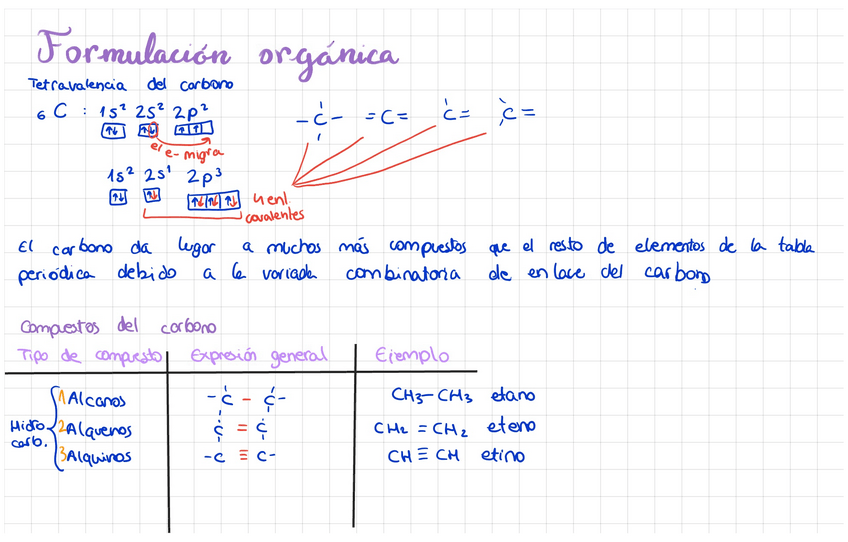 Formulación orgánica
Tetravalencia del carbono
6 C : 1s² 2s² 2p²
el e- migra
1s² 2s¹ 2p³
4 enl.
covalentes
-C- =C= C= C=
El carbono da lugar a muchos más compuestos que el resto de elementos de la tabla
periódica debido a la variada combinatoria de enlace del carbono
Compuestos del carbono
Tipo de compuesto Expresión general Ejemplo
Hidrocarb.
1 Alcanos -C - C- CH3-CH3 etano
2 Alquenos C = C CH2 = CH2 eteno
3 Alquinos -C ≡ C- CH ≡ CH etino